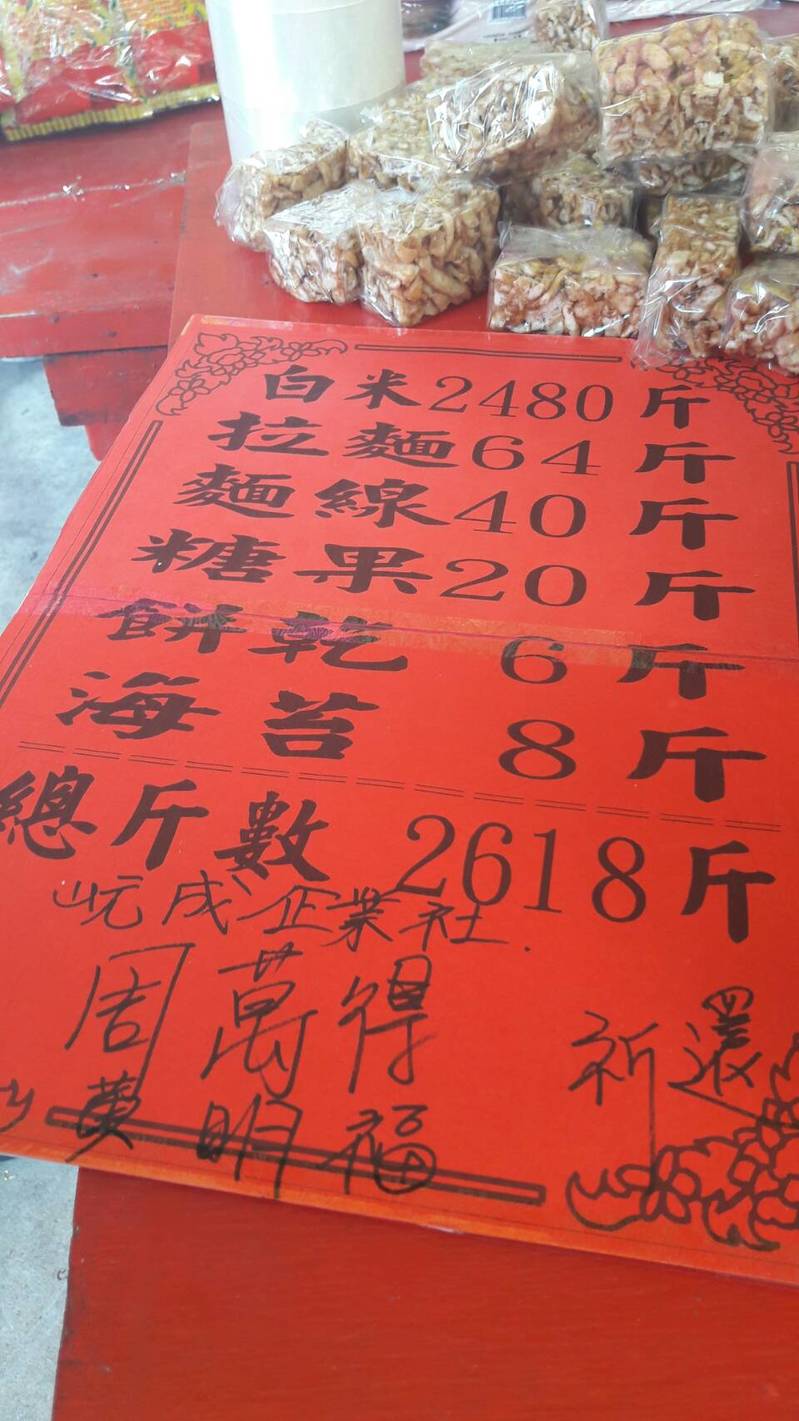 白米2480斤
拉麵64斤
麵線40斤
糖果20斤
餅乾 6斤
海苔 8斤
總斤數 2618斤
成企業社
周萬得
黃明福
祈還